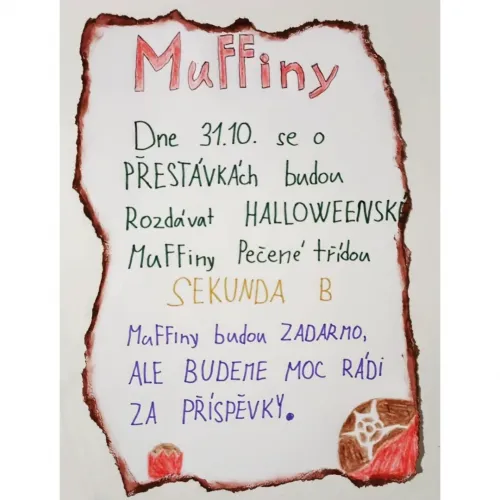 Muffiny
Dne 31.10. se o
PŘESTÁVKÁch budou
Rozdávat HALLOWEENSKÉ
Muffiny Pečené třídou
SEKUNDA B
Muffiny budou ZADARMO,
ALE BUDEME MOC RÁDI
ZA PŘÍSPĚVKY.